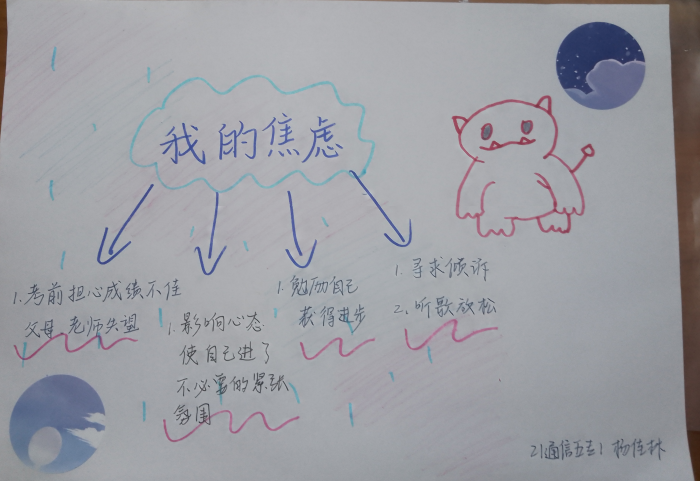 我的焦虑
1.考前担心成绩不佳
父母 老师失望
1.影响心态
使自己进了
不必要的紧张
氛围
1.勉励自己
获得进步
1.寻求倾诉
2.听歌放松
21通信五专1 杨佳林